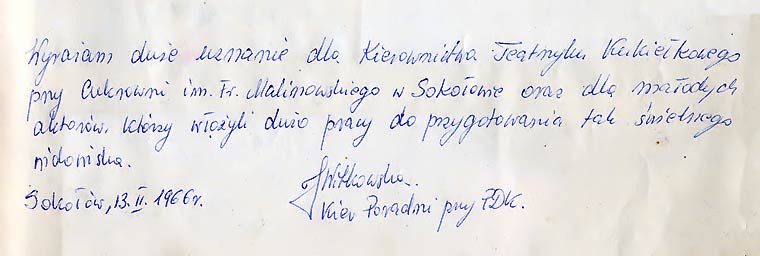 Wyrażam duże uznanie dla Kierownictwa Teatrzyku Kukiełkowego
przy Cukrowni im. Fr. Malinowskiego w Sokołowie oraz dla małodych
aktorów, którzy włożyli dużo pracy do przygotowania tak świetnego
widowiska.
Sokołów, 13.II.1966r.
JWitkowska.
Kier Poradni przy PDK.